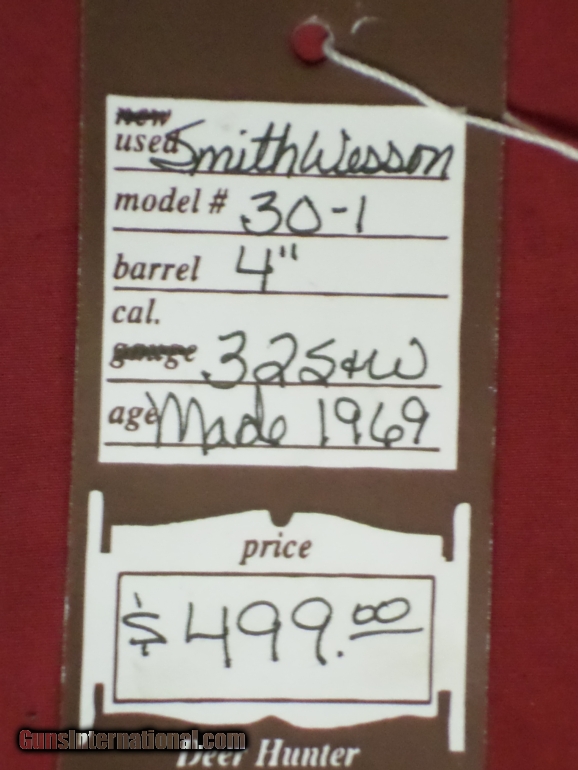 new
used Smith Wesson
model # 30-1
barrel 4"
cal.
gauge .32 S+W
age Made 1969
price
$499.00
GunsInternational.com
Deer Hunter